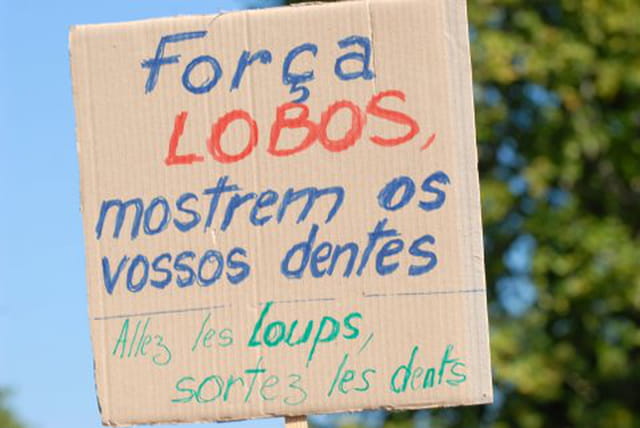 Força
LOBOS,
mostrem os
vossos dentes
Allez les loups,
sortez les dents